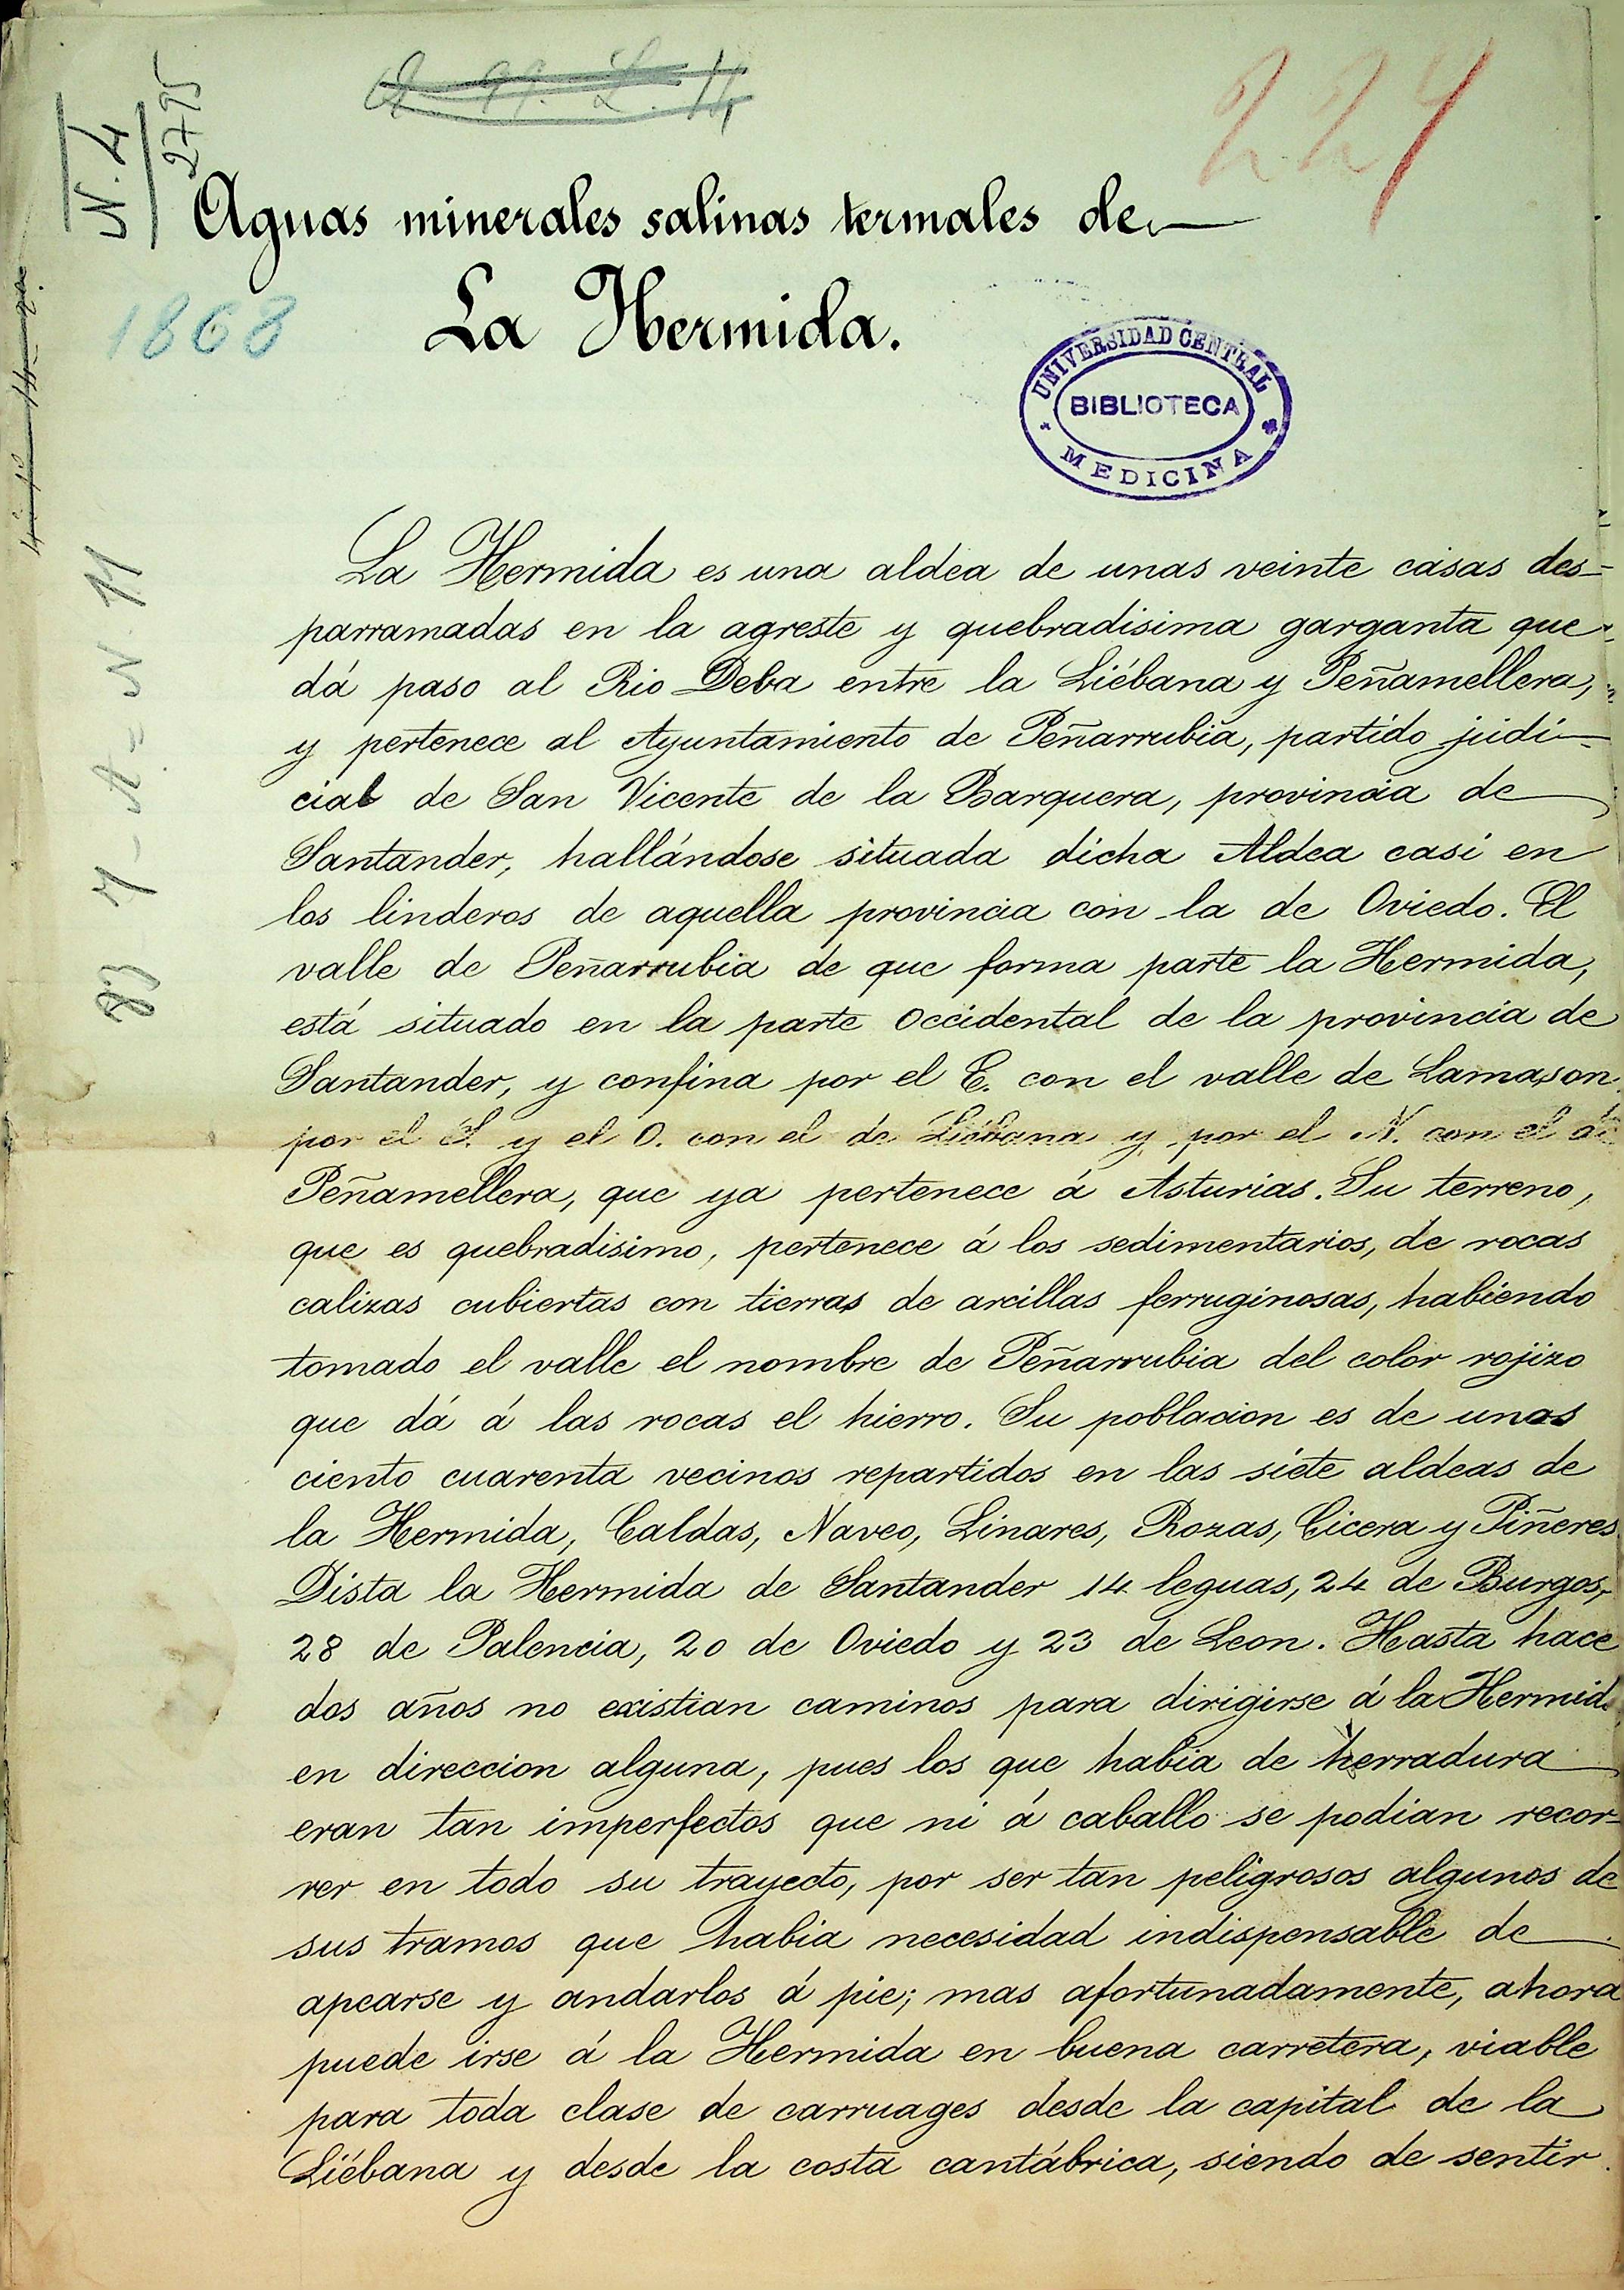 224
N. 4
2795
Aguas minerales salinas termales de
1868
La Hermida.
UNIVERSIDAD CENTRAL
BIBLIOTECA
MEDICINA
83 7-A=N.11
La Hermida es una aldea de unas veinte casas des-
parramadas en la agreste y quebradisima garganta que
dá paso al Rio Deba entre la Liébana y Peñamellera,
y pertenece al Ayuntamiento de Peñarrubia, partido judi-
cial de San Vicente de la Barquera, provincia de
Santander, hallándose situada dicha Aldea casi en
los linderos de aquella provincia con la de Oviedo. El
valle de Peñarrubia de que forma parte la Hermida,
está situado en la parte occidental de la provincia de
Santander, y confina por el E. con el valle de Lamason
por el S. y el O. con el de Liébana y por el N. con el de
Peñamellera, que ya pertenece á Asturias. Su terreno,
que es quebradisimo, pertenece á los sedimentarios, de rocas
calizas cubiertas con tierras de arcillas ferruginosas, habiendo
tomado el valle el nombre de Peñarrubia del color rojizo
que dá á las rocas el hierro. Su poblacion es de unos
ciento cuarenta vecinos repartidos en las siete aldeas de
la Hermida, Caldas, Naveo, Linares, Rozas, Cicera y Piñeres
Dista la Hermida de Santander 14 leguas, 24 de Burgos,
28 de Palencia, 20 de Oviedo y 23 de Leon. Hasta hace
dos años no existian caminos para dirigirse á la Hermida
en direccion alguna, pues los que habia de herradura
eran tan imperfectos que ni á caballo se podian recor-
rer en todo su trayecto, por ser tan peligrosos algunos de
sus tramos que habia necesidad indispensable de
apearse y andarlos á pie; mas afortunadamente, ahora
puede irse á la Hermida en buena carretera, viable
para toda clase de carruages desde la capital de la
Liébana y desde la costa cantábrica, siendo de sentir